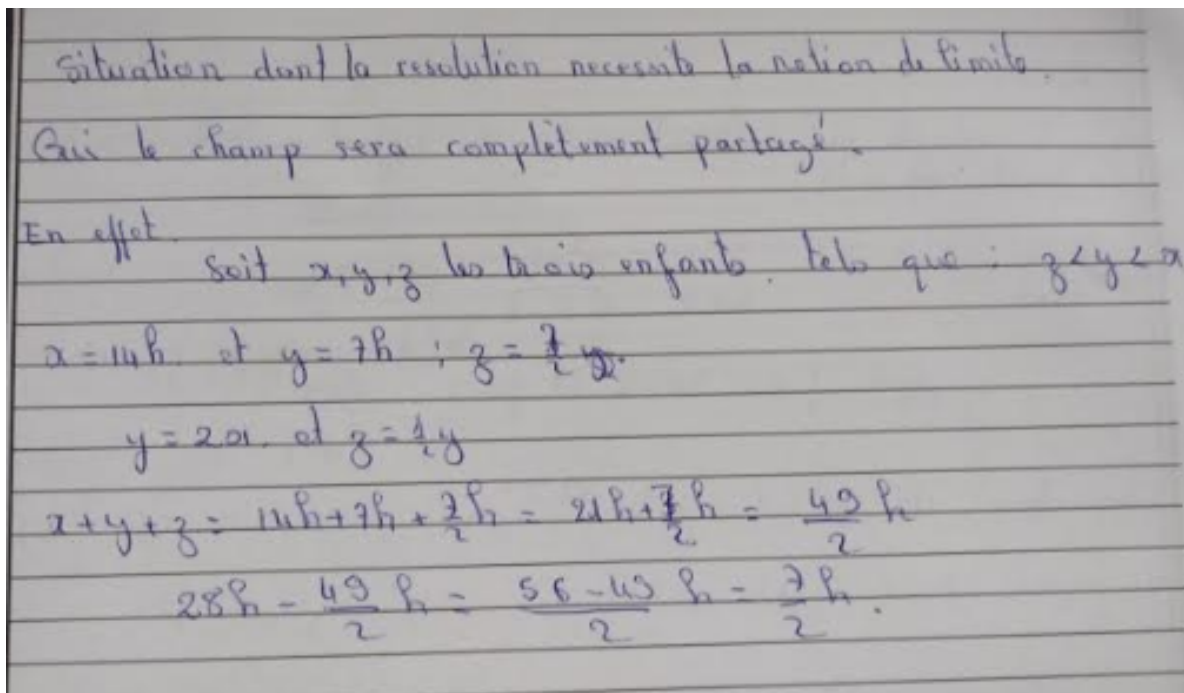 Situation dont la resolution necessite la notion de limite.
Oui le champ sera complètement partagé.
En effet.
Soit x, y, z les trois enfants. tels que : z < y < x
x = 14h. et y = 7h ; z = 1/2 y.
y = 2x. et z = 1/2 y
x + y + z = 14h + 7h + 7/2 h = 21h + 7/2 h = 49/2 h
28h - 49/2 h = (56 - 49)/2 h = 7/2 h.